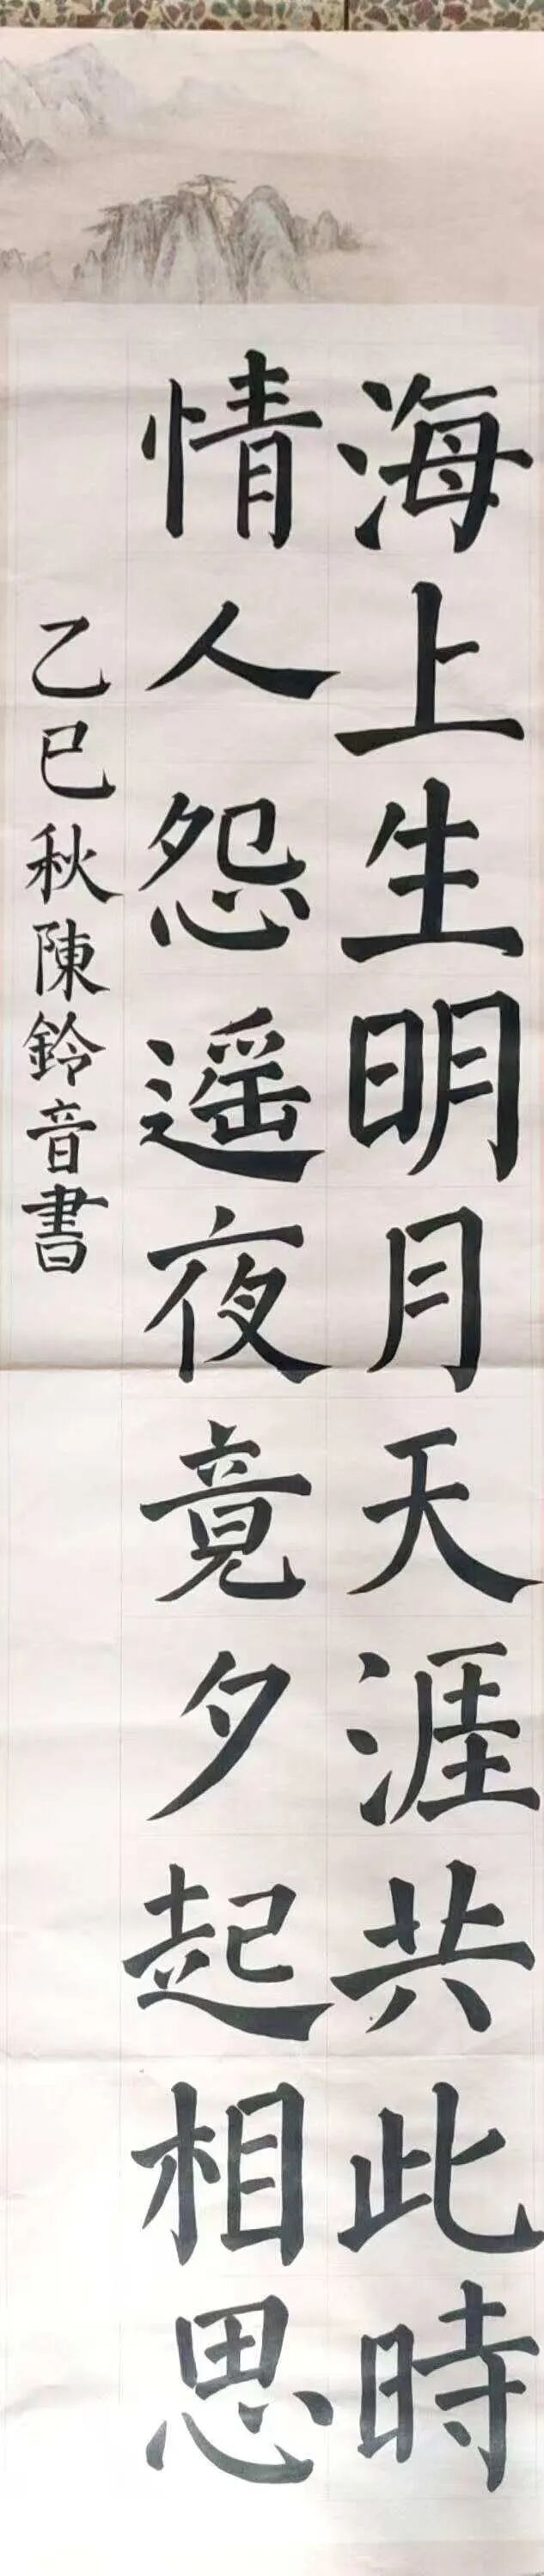 海上生明月天涯共此時
情人怨遥夜竟夕起相思
乙巳秋陳鈴音書